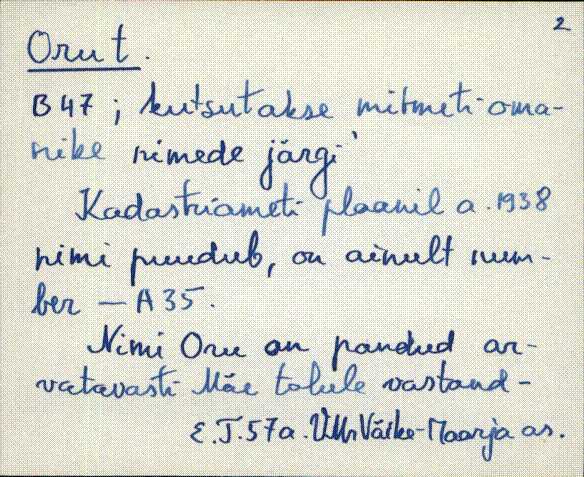 2
Oru t.
B 47 ; kutsutakse mitmeti oma-
nike nimede järgi
Kadastriameti plaanil a. 1938
nimi puudub, on ainult num-
ber — A 35.
Nimi Oru on pandud ar-
vatavasti Mäe talule vastand-
E.T. 57a. Väike-Maarja as.